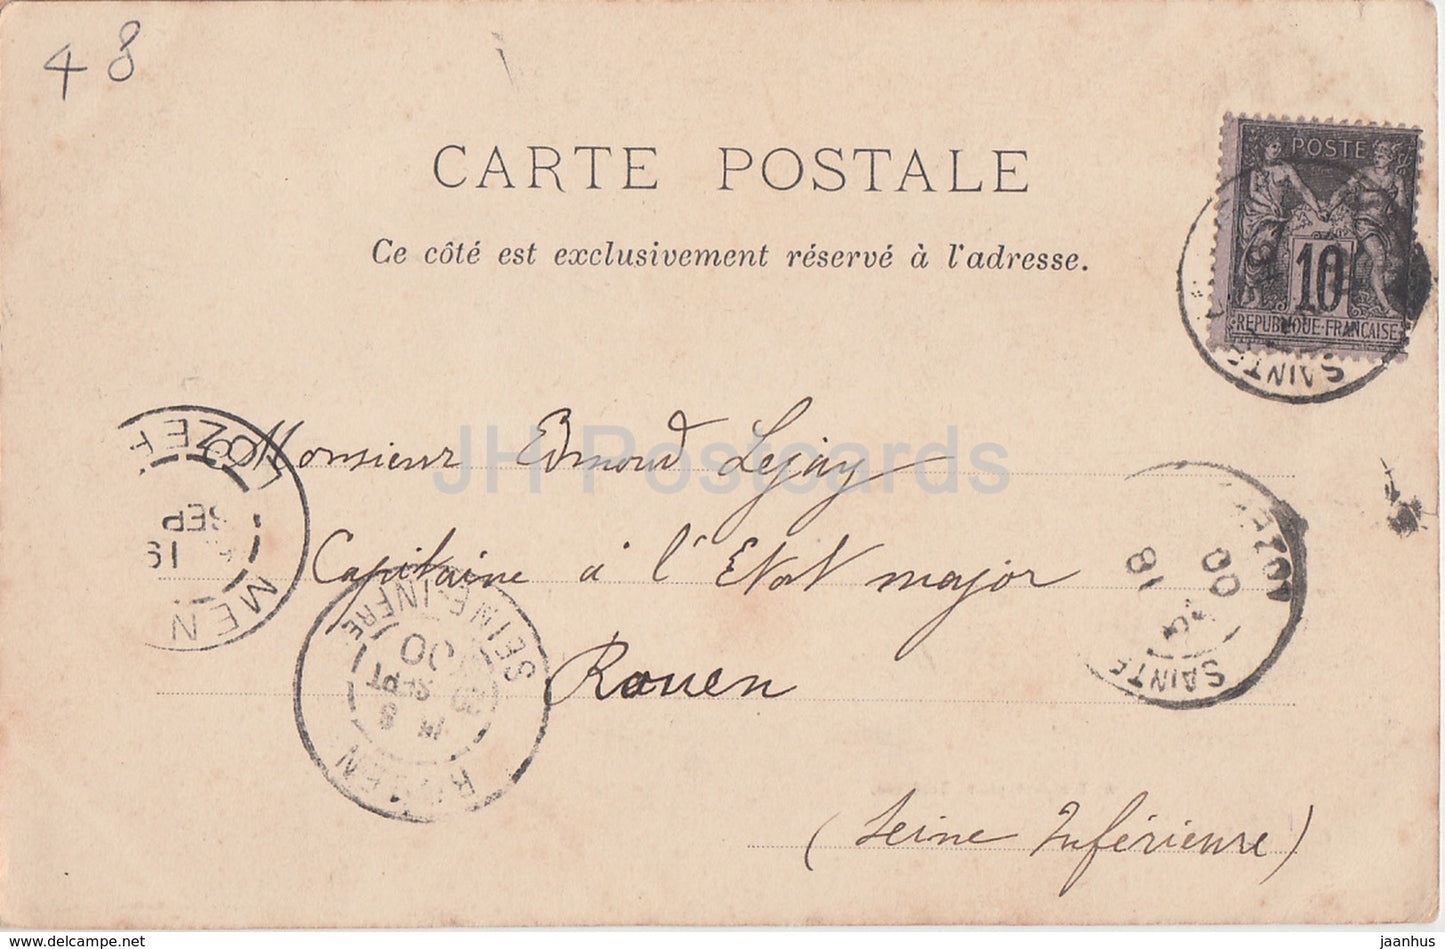 48
CARTE POSTALE
Ce côté est exclusivement réservé à l'adresse.
POSTE
10
REPUBLIQUE FRANCAISE
SAINTE
Monsieur Edmond Lejay
Capitaine à l'Etat major
Rouen
(Seine Inférieure)
LOZERE
SEP
19
MEN
ROUEN
SEINE-INFRE
8
SEPT
00
SAINTE
LOZE
18
00
JH Postcards
delcampe.net
jaanhus